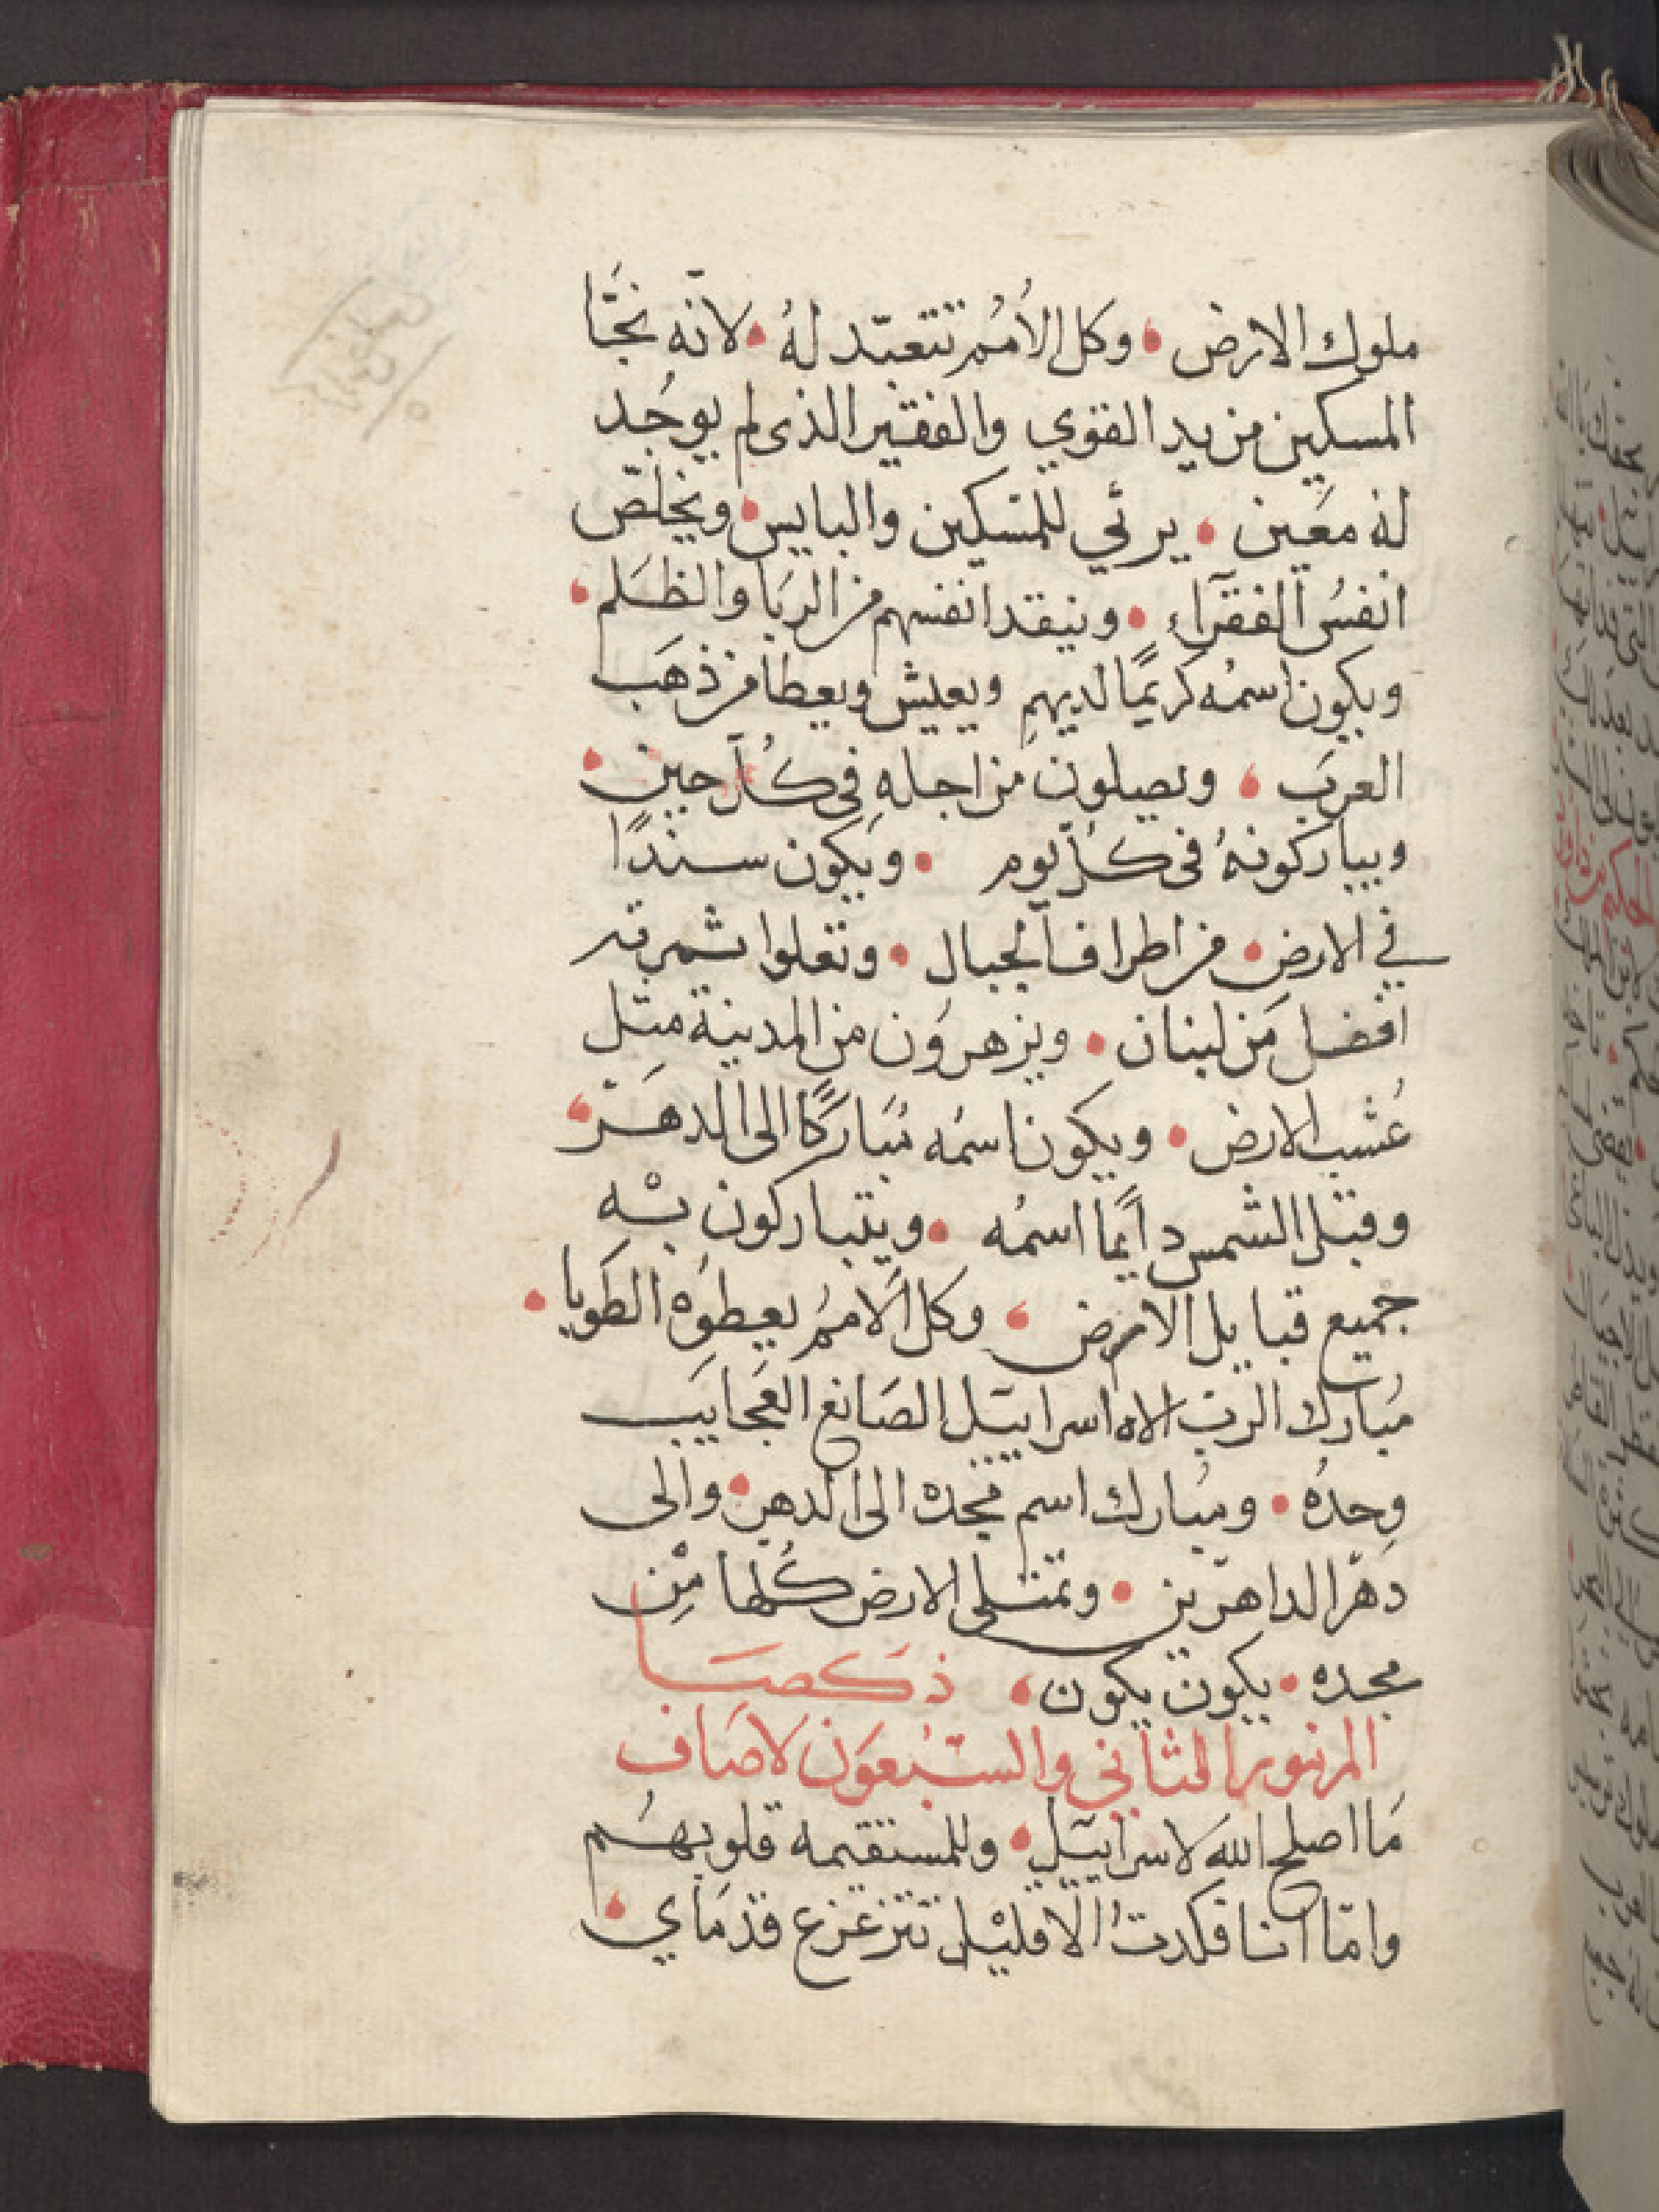 ملوك الارض • وكل الأمُم تتعبّد لهُ • لانّه نجَّا
المسكين من يد القوي والفقير الذى لم يوجَد
له معَين • يرثي للمسَكين والبايس • ويخلّص
انفسُ الفقرآء • وينقد انفسهم من الربَا والظلَم •
ويكون اسمُه كريمًا لديهمِ ويعيش ويعطا من ذهَب
العربَ • ويصلون من اجلهِ فى كُلّ حين •
ويباركونهُ فى كُلّ يوم • ويكون سندًا
في الارضِ • من اطراف الجبال • وتعلوا ثمرته
افضل مَن لبنان • ويزهروُن من المدينة مثِل
عُشب الارض • ويكون اسمُه مُبَاركًا الى الدهَر •
وقبَل الشمس دايمًا اسمُه • ويتباركون بهِ
جميع قبايل الارض • وكل الامُم يعطوُه الطَوبا •
مُبارك الربّ الاه اسراييَل الصَانع العَجايَب
وحدُه • ومُبارك اسم مَجده الى الدهر • والى
دهَر الداهرَين • وتمتلى الارض كُلها مِن
مجده • يكون يكون • ذكصَا
المزمور الثاني والسَبعوَن لاصَاف
مَا اصلح اللهَ لاسراييَل • وللمستقيمه قلوبهُم
وامّا انا فكدتُ الا قليْل تتزعزع قدمَاي •